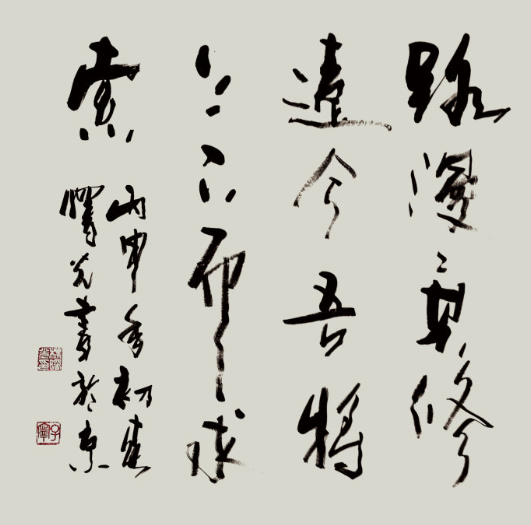 路漫〻其修
遠兮吾將
上下而求
索
丙申年初
光書於京